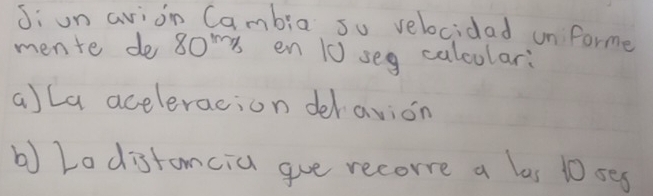 Si un avión Cambia su velocidad uniforme
mente de 80 m/s en 10 seg calcular:
a) La aceleracion del avión
b) La distancia que recorre a las 10 seg